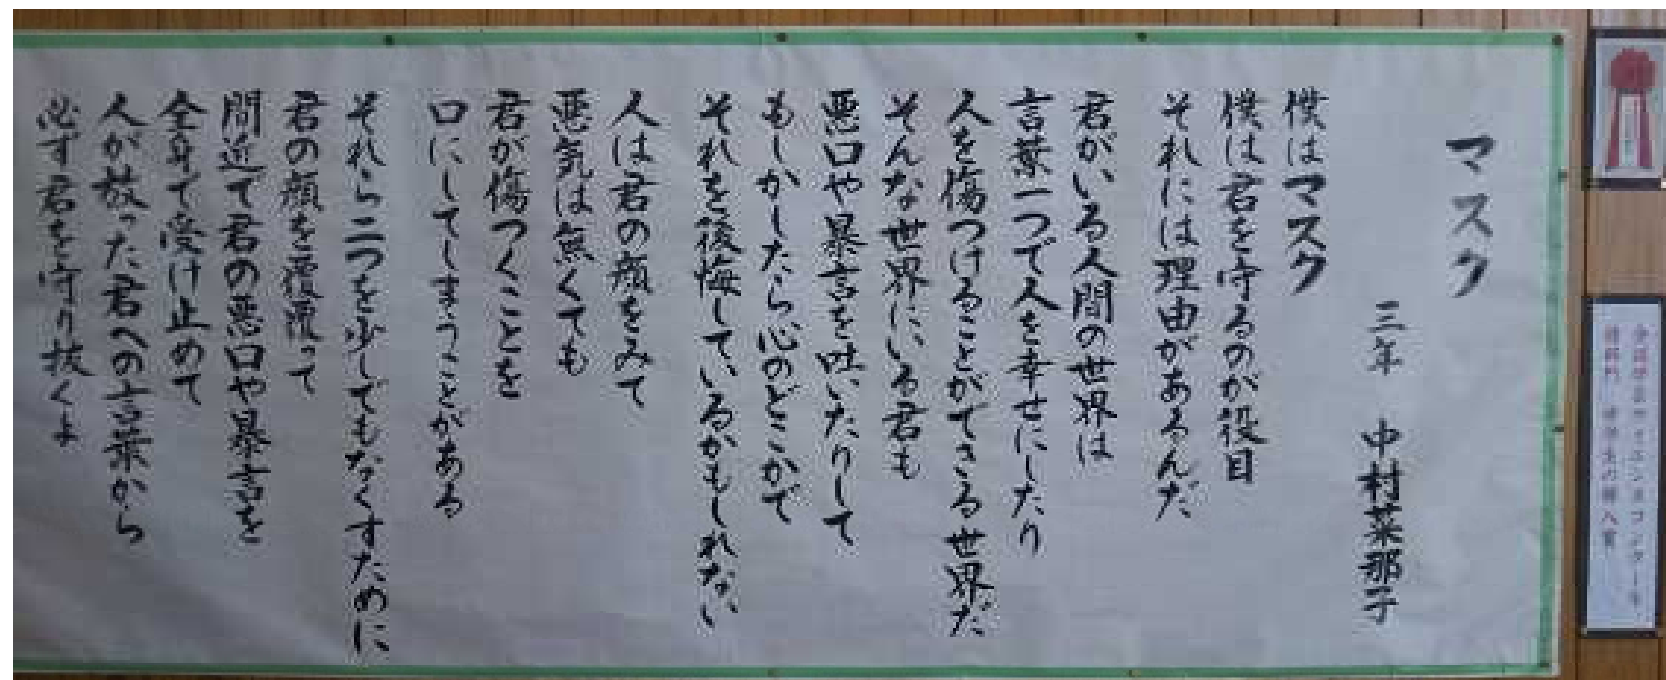 マスク
三年 中村菜那子
僕はマスク
僕は君を守るのが役目
それには理由があるんだ
君がいる人間の世界は
言葉一つで人を幸せにしたり
人を傷つけることができる世界だ
そんな世界にいる君も
悪口や暴言を吐いたりして
もしかしたら心のどこかで
それを後悔しているかもしれない
人は君の顔をみて
悪気は無くても
君が傷つくことを
口にしてしまうことがある
それら二つを少しでもなくすために
君の顔を覆って
間近で君の悪口や暴言を
全身で受け止めて
人が放った君への言葉から
必ず君を守り抜くよ